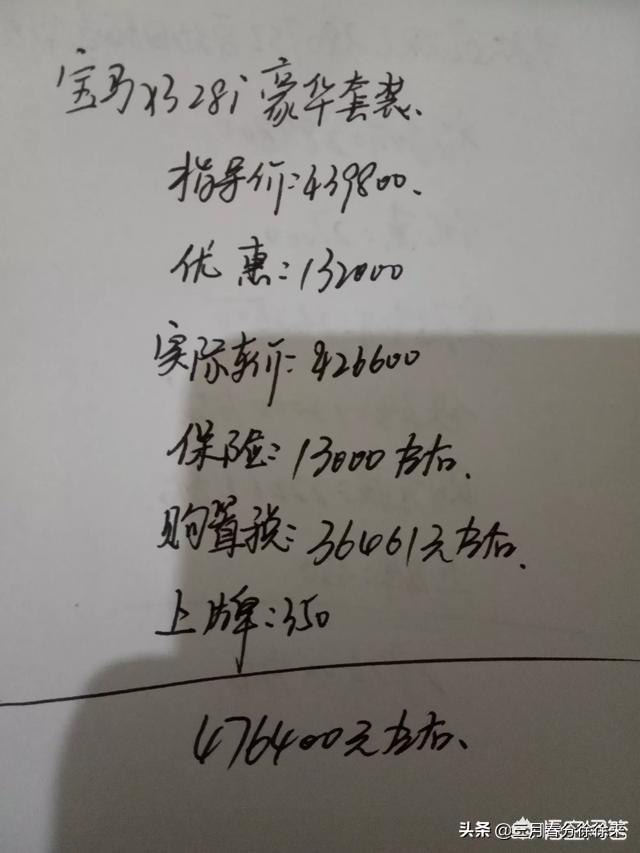 宝马X3 28i豪华套装、
指导价:439800、
优惠:132000
实际车价:426600
保险:13000左右、
购置税:36461元左右、
上牌:350
476400元左右、
头条 @三月春分徐徐来